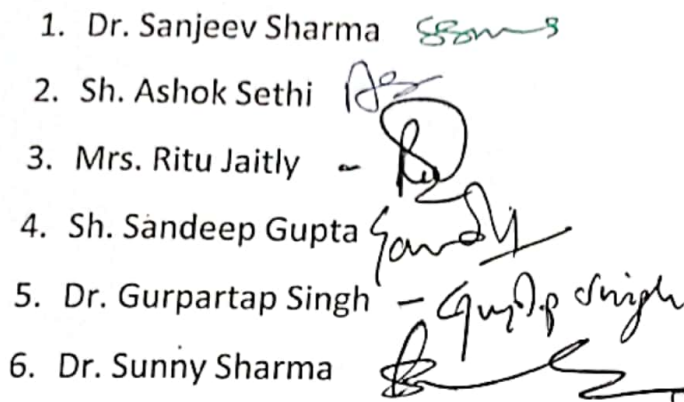 1. Dr. Sanjeev Sharma
2. Sh. Ashok Sethi
3. Mrs. Ritu Jaitly -
4. Sh. Sandeep Gupta
5. Dr. Gurpartap Singh - Singh
6. Dr. Sunny Sharma